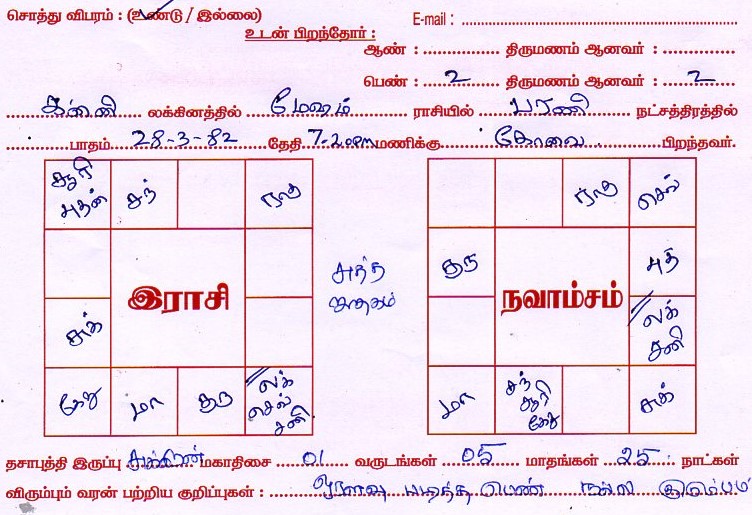 சொத்து விபரம் : (உண்டு / இல்லை)
E-mail :
உடன் பிறந்தோர் :
ஆண் : திருமணம் ஆனவர் :
பெண் : 2 திருமணம் ஆனவர் : 2
கன்னி லக்கினத்தில் மேஷம் ராசியில் பரணி நட்சத்திரத்தில்
பாதம் 28-3-82 தேதி 7-20pm மணிக்கு கோவை பிறந்தவர்.
சூரி புதன் சந் ராகு
ராகு செவ்
குரு புத்
இராசி
சுத்த ஜாதகம்
நவாம்சம்
சுக்
லக் சனி
கேது மா குரு லக் செவ் சனி
மா சந் சூரி கேது சுக்
தசாபுத்தி இருப்பு சுக்கிரன் மகாதிசை 01 வருடங்கள் 05 மாதங்கள் 25 நாட்கள்
விரும்பும் வரன் பற்றிய குறிப்புகள் : ஓரளவு படித்த பெண் நல்ல குடும்பம்